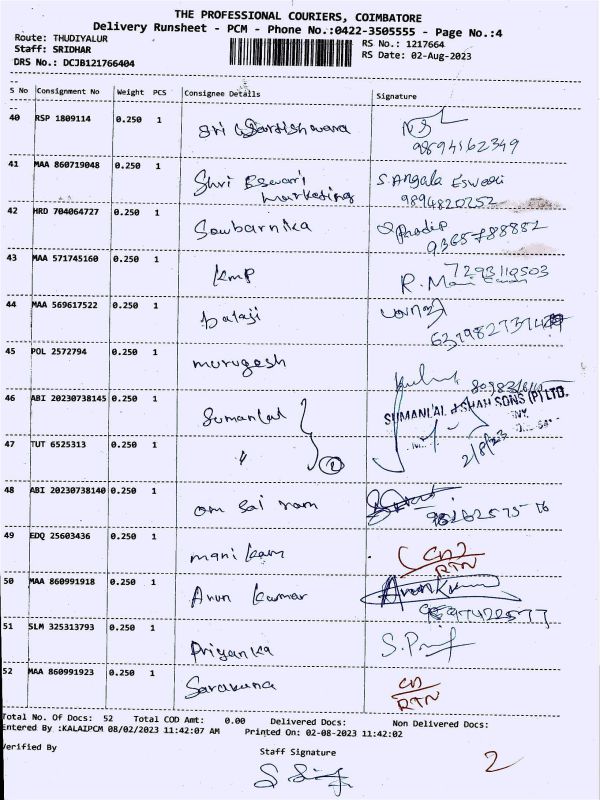 THE PROFESSIONAL COURIERS, COIMBATORE
Delivery Runsheet - PCM - Phone No.:0422-3505555 - Page No.:4
Route: THUDIYALUR
RS No.: 1217664
Staff: SRIDHAR
RS Date: 02-Aug-2023
DRS No.: DCJB121766404
S No Consignment No Weight PCS Consignee Details Signature
40 RSP 1809114 0.250 1 Sri
41 MAA 860719048 0.250 1 Shri Eswari Marketing S. Angala Eswari
9894820252
42 HRD 704064727 0.250 1 Sowbarnika Pradip
9365788882
43 MAA 571745160 0.250 1 kmp 7293119503
R. Mani
44 MAA 569617522 0.250 1 balaji
45 POL 2572794 0.250 1 murugesh
46 ABI 20230738145 0.250 1 Sumanlal SUMANLAL J SHAH SONS (P) LTD.
47 TUT 6525313 0.250 1 " 2 2/8/23
48 ABI 20230738140 0.250 1 om Sai ram
49 EDQ 25603436 0.250 1 mani kam
RTN
50 MAA 860991918 0.250 1 Arun kumar Arunkumar
51 SLM 325313793 0.250 1 Priyanka
52 MAA 860991923 0.250 1 Saravana
RTN
Total No. Of Docs: 52 Total COD Amt: 0.00 Delivered Docs: Non Delivered Docs:
Entered By :KALAIPCM 08/02/2023 11:42:07 AM Printed On: 02-08-2023 11:42:02
Verified By Staff Signature
2